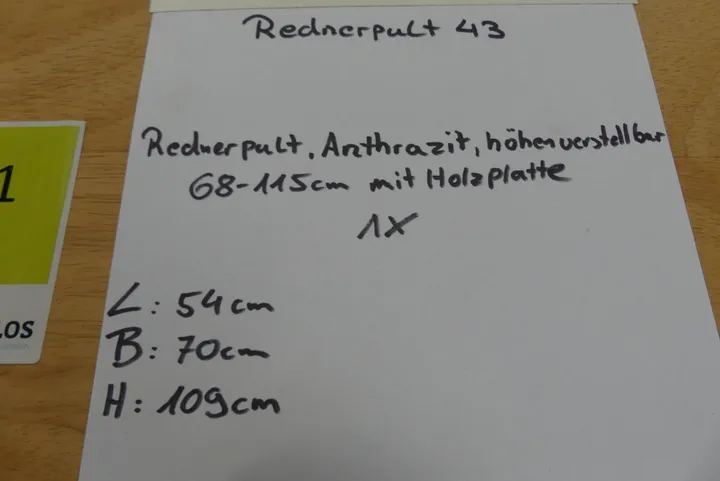 Rednerpult 43
Rednerpult, Anthrazit, höhenverstellbar
68-115cm mit Holzplatte
1X
L: 54cm
B: 70cm
H: 109cm
1
LOS